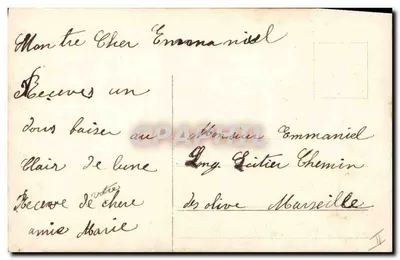 Mon tre Cher Emmaniel
Reçuves un
dous baiser au
Clair de lune
Receve de votre chere
amie Marie
Monsieur Emmaniel
Chemin
des olive Marseille
II